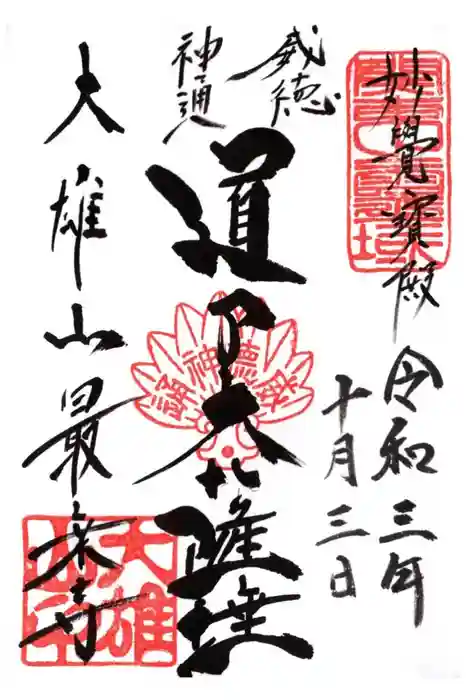 妙覺寶殿
令和三年
十月三日
威徳
神通
道了大薩埵
大雄山最乗寺
大雄山印